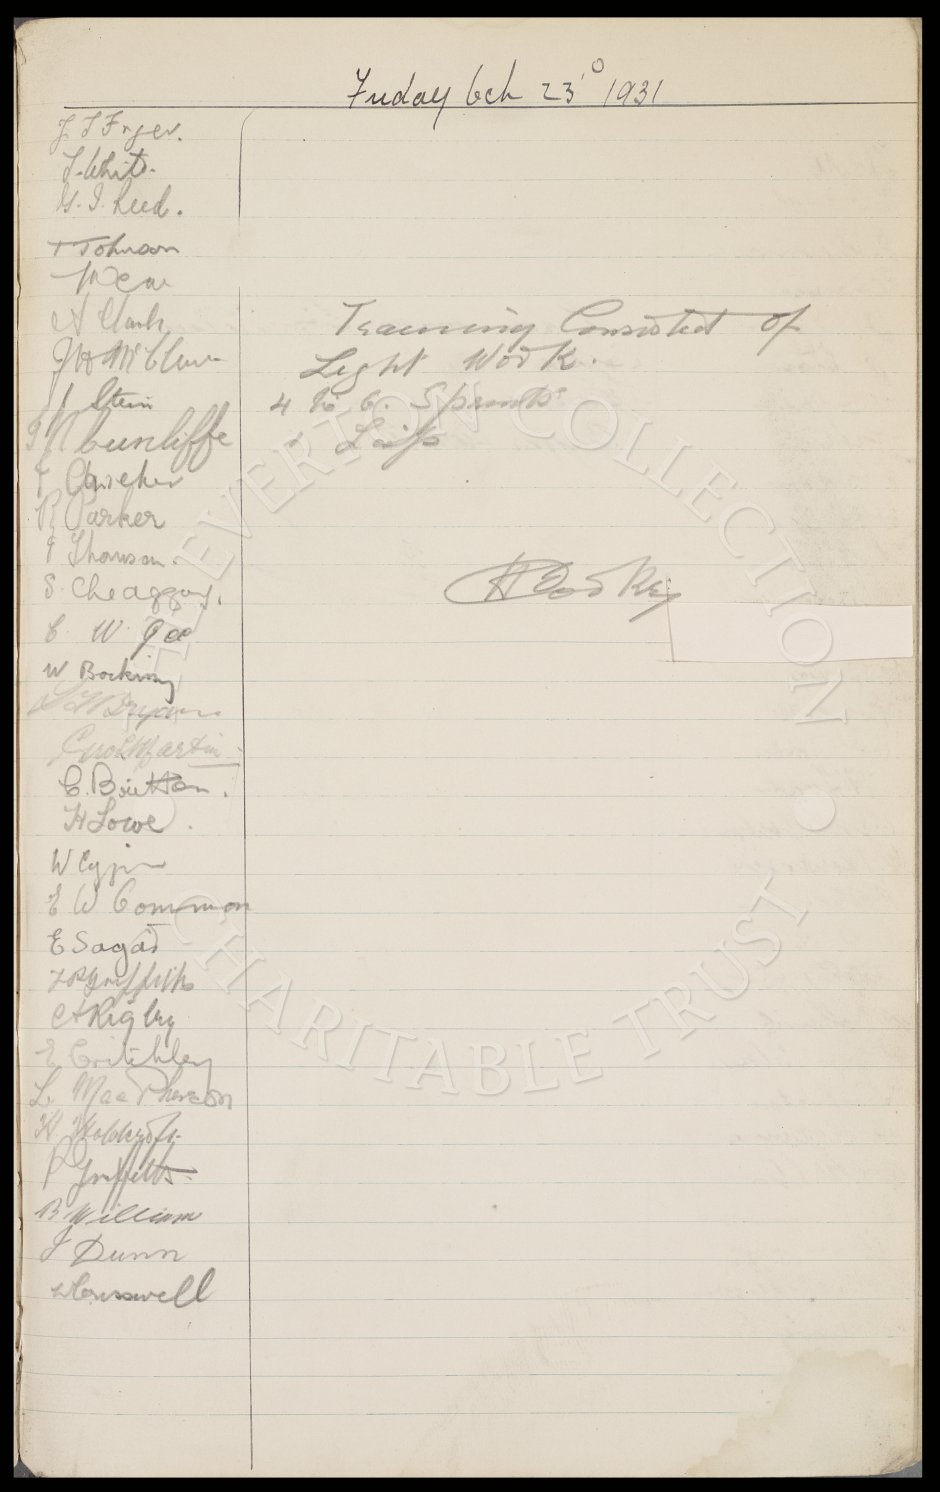 Friday Oct 23rd 1931
J. S Fryer.
T. White.
G. I. Reed.
T Johnson
A Clark
J H McClure
J Stein
J N Cunliffe
T Archer
R Parker
J Thomson.
S. Cheaqqay.
C. W. Gee
W Bocking
Geo L Martin
C. Britton.
H Lowe
W Coggins
E W Common
E Sagar
T P Griffiths
A Rigby
E Critchley
L. MacPherson
H Holdcroft.
P Griffiths.
B William
J Dunn
W Cresswell
Training Consisted of
Light Work.
4 to 6. Sprints
" Laps
H Cooke
EVERTON COLLECTION
CHARITABLE TRUST